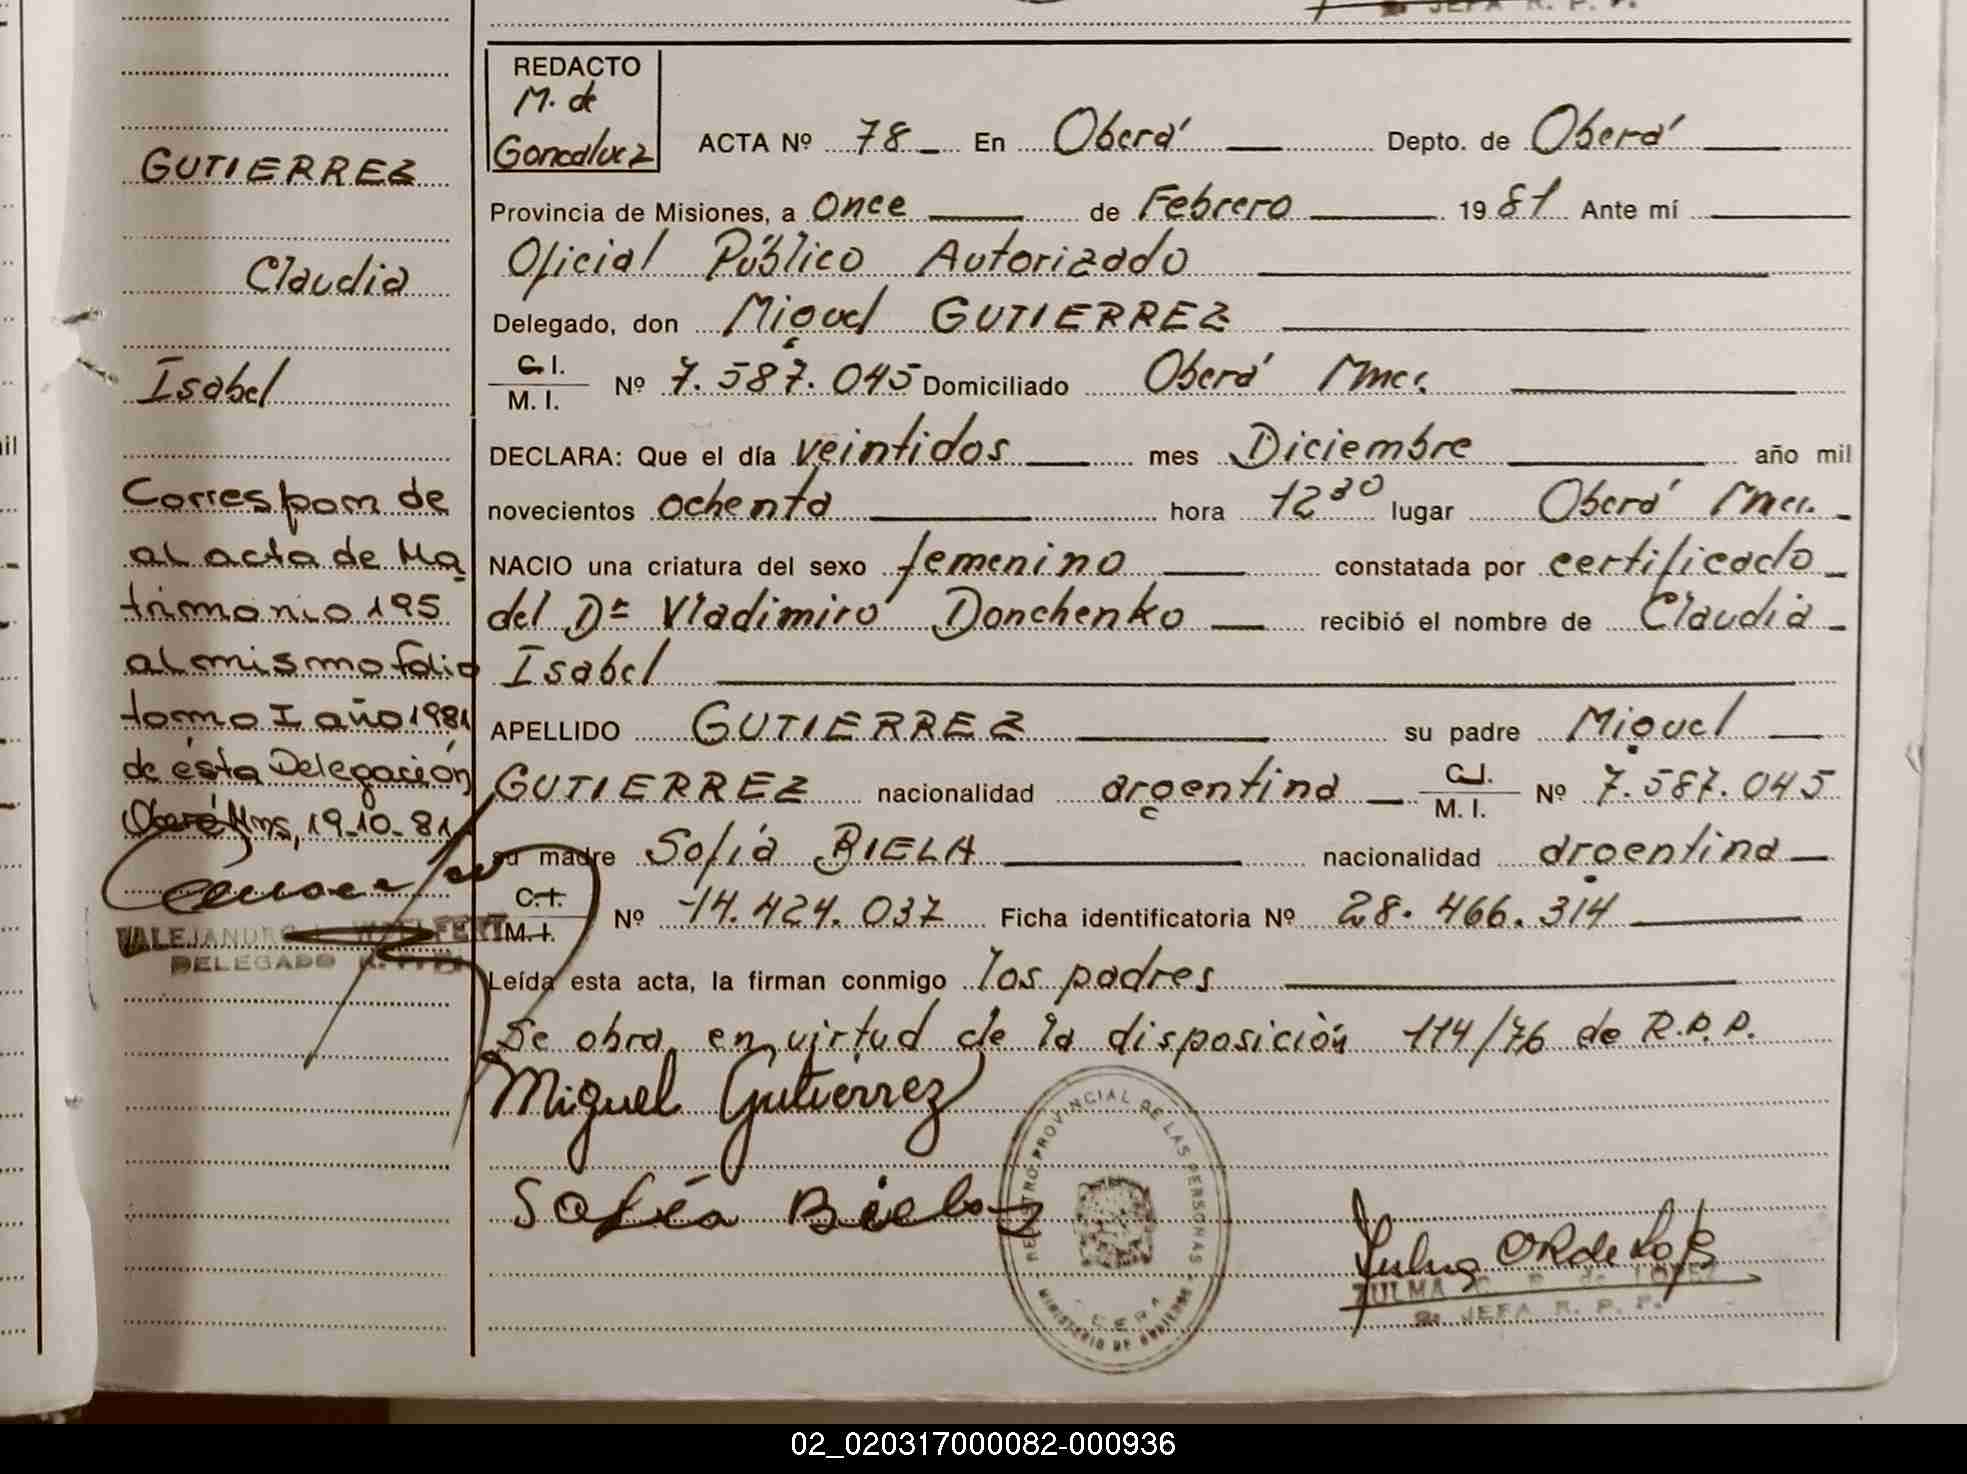 JEFA R. P. P.
GUTIERREZ
Claudia
Isabel
Correspon de
al acta de Ma
trimonio 195
al mismo folio
tomo I año 1981
de ésta Delegación
Oberá Mns, 19-10-81
DELEGADO R. P. P.
REDACTO
M. de
Goncalvez
ACTA Nº 78 En Oberá Depto. de Oberá
Provincia de Misiones, a Once de Febrero 1981 Ante mí
Oficial Público Autorizado
Delegado, don Miguel GUTIERREZ
C. I.
M. I. Nº 7.587.045 Domiciliado Oberá Mnes.
DECLARA: Que el día veintidos mes Diciembre año mil
novecientos ochenta hora 12 30 lugar Oberá Mnes.
NACIO una criatura del sexo femenino constatada por certificado
del Dr Vladimiro Donchenko recibió el nombre de Claudia
Isabel
APELLIDO GUTIERREZ su padre Miguel
GUTIERREZ nacionalidad argentina C.I. M. I. Nº 7.587.045
su madre Sofía BIELA nacionalidad argentina
C.I.
M.I. Nº 14.424.037 Ficha identificatoria Nº 28.466.314
Leída esta acta, la firman conmigo los padres
Se obra en virtud de la disposición 114/76 de R.P.P.
Miguel Gutierrez
Sofía Biela
REGISTRO PROVINCIAL DE LAS PERSONAS
MINISTERIO DE GOBIERNO
ZULMA de LOPEZ
JEFA R. P. P.
02_020317000082-000936